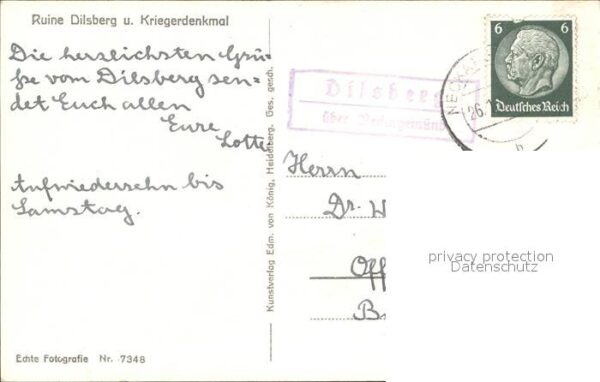 Ruine Dilsberg u. Kriegerdenkmal
Die herzlichsten Grü-
ße vom Dilsberg sen-
det Euch allen
Eure
Lotte
Aufwiedersehn bis
Samstag.
Echte Fotografie Nr. 7348
Kunstverlag Edm. von König, Heidelberg. Ges. gesch.
Dilsberg
über Neckargemünd
6 6
Deutsches Reich
NECKAR
26.1
b
Herrn
Dr. W
Off
B
privacy protection
Datenschutz